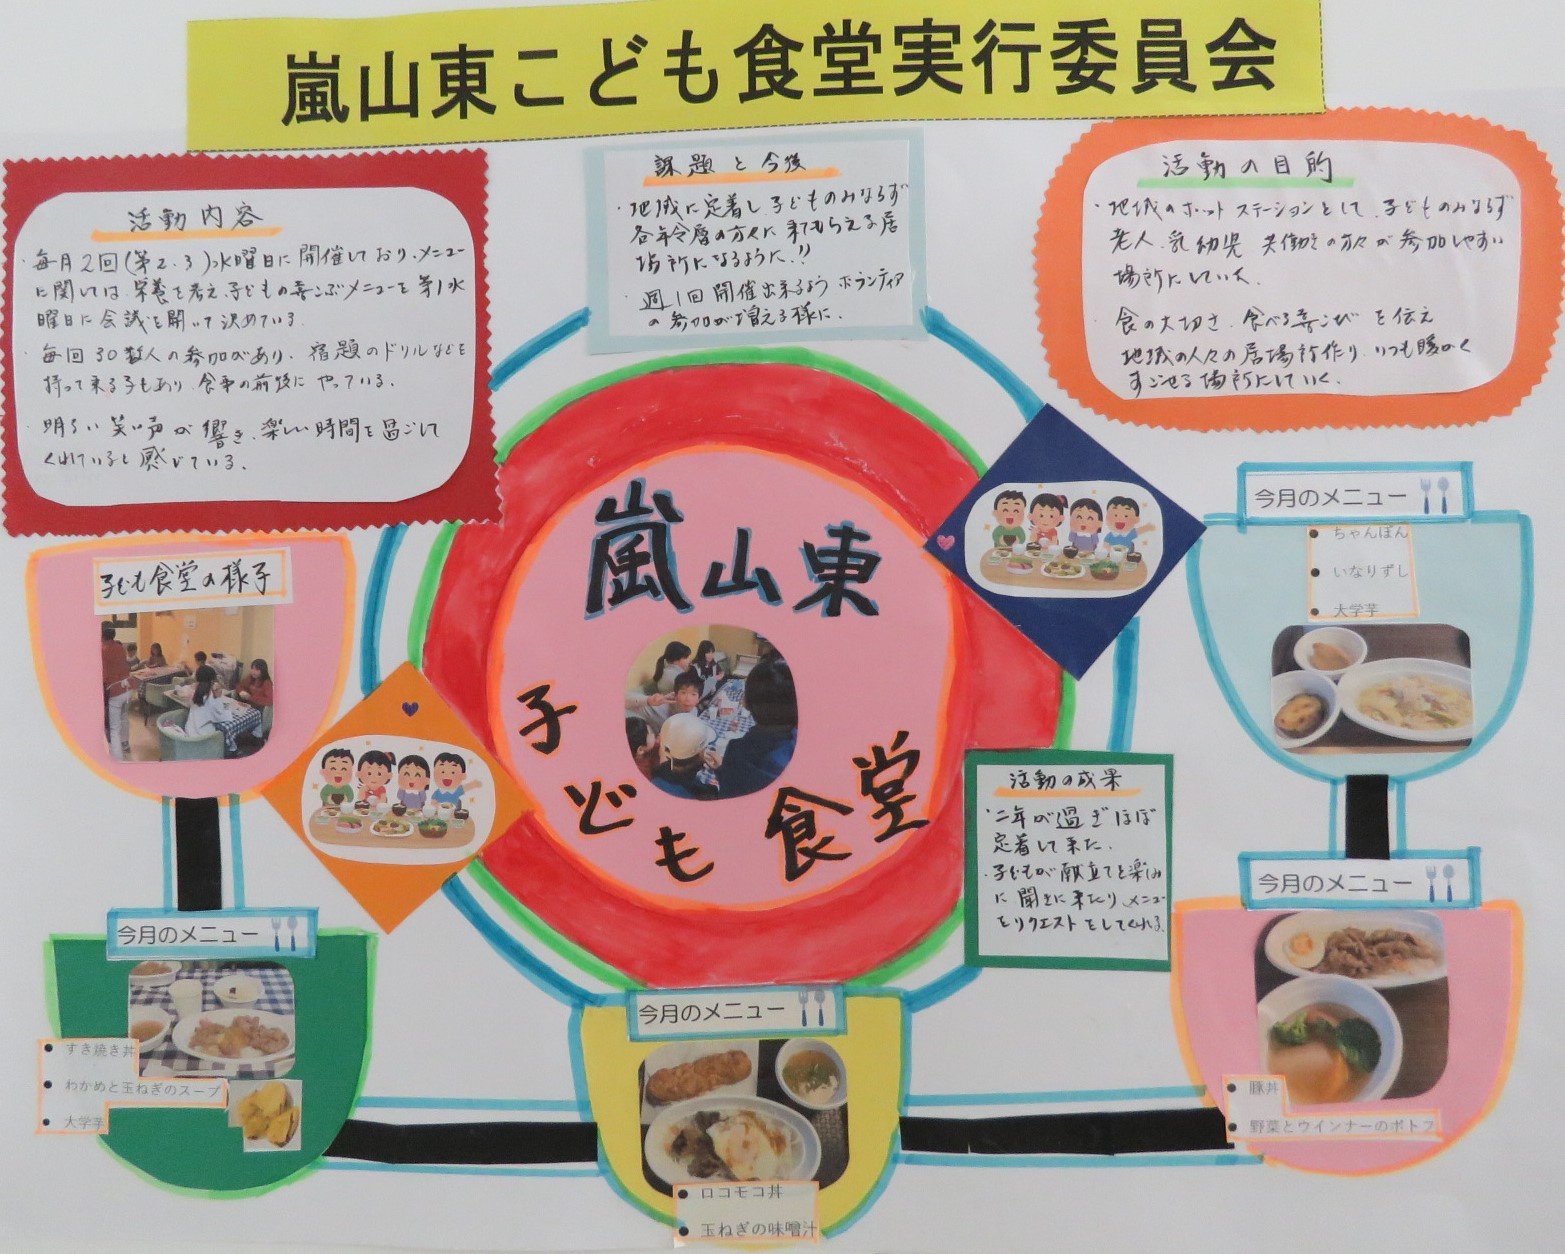 嵐山東こども食堂実行委員会
活動内容
・毎月2回(第2.3)水曜日に開催しており、メニュー
に関しては、栄養を考え、子どもの喜ぶメニューを第1水
曜日に会議を開いて決めている。
・毎回30数人の参加があり、宿題のドリルなどを
持って来る子もあり、食事の前後にやっている。
・明るい笑い声が響き、楽しい時間を過ごして
くれていると感じている。
課題と今後
・地域に定着し、子どものみならず
各年令層の方々に来てもらえる居
場所になるように!!
・週1回開催出来るようボランティア
の参加が増える様に。
活動の目的
・地域のホットステーションとして、子どものみならず
老人、乳幼児、共働きの方々が参加しやすい
場所にしていく。
・食の大切さ、食べる喜こびを伝え
地域の人々の居場所作り、いつも暖かく
すごせる場所にしていく。
嵐山東
子ども食堂
子ども食堂の様子
今月のメニュー
● ちゃんぽん
● いなりずし
● 大学芋
活動の成果
・二年が過ぎほぼ
定着して来た。
・子どもが献立てを楽しみ
に聞きに来たり、メニュー
をリクエストをしてくれる。
今月のメニュー
● すき焼き丼
● わかめと玉ねぎのスープ
● 大学芋
今月のメニュー
● ロコモコ丼
● 玉ねぎの味噌汁
今月のメニュー
● 豚丼
● 野菜とウインナーのポトフ